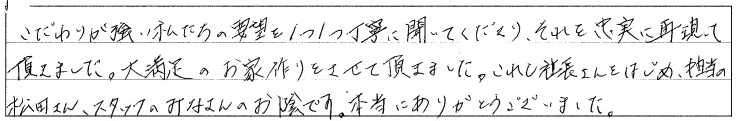 こだわりが強い私たちの要望を1つ1つ丁寧に聞いてくださり、それを忠実に再現して
頂きました。大満足のお家作りをさせて頂きました。これも社長さんをはじめ、担当の
松田さん、スタッフのみなさんのお陰です。本当にありがとうございました。